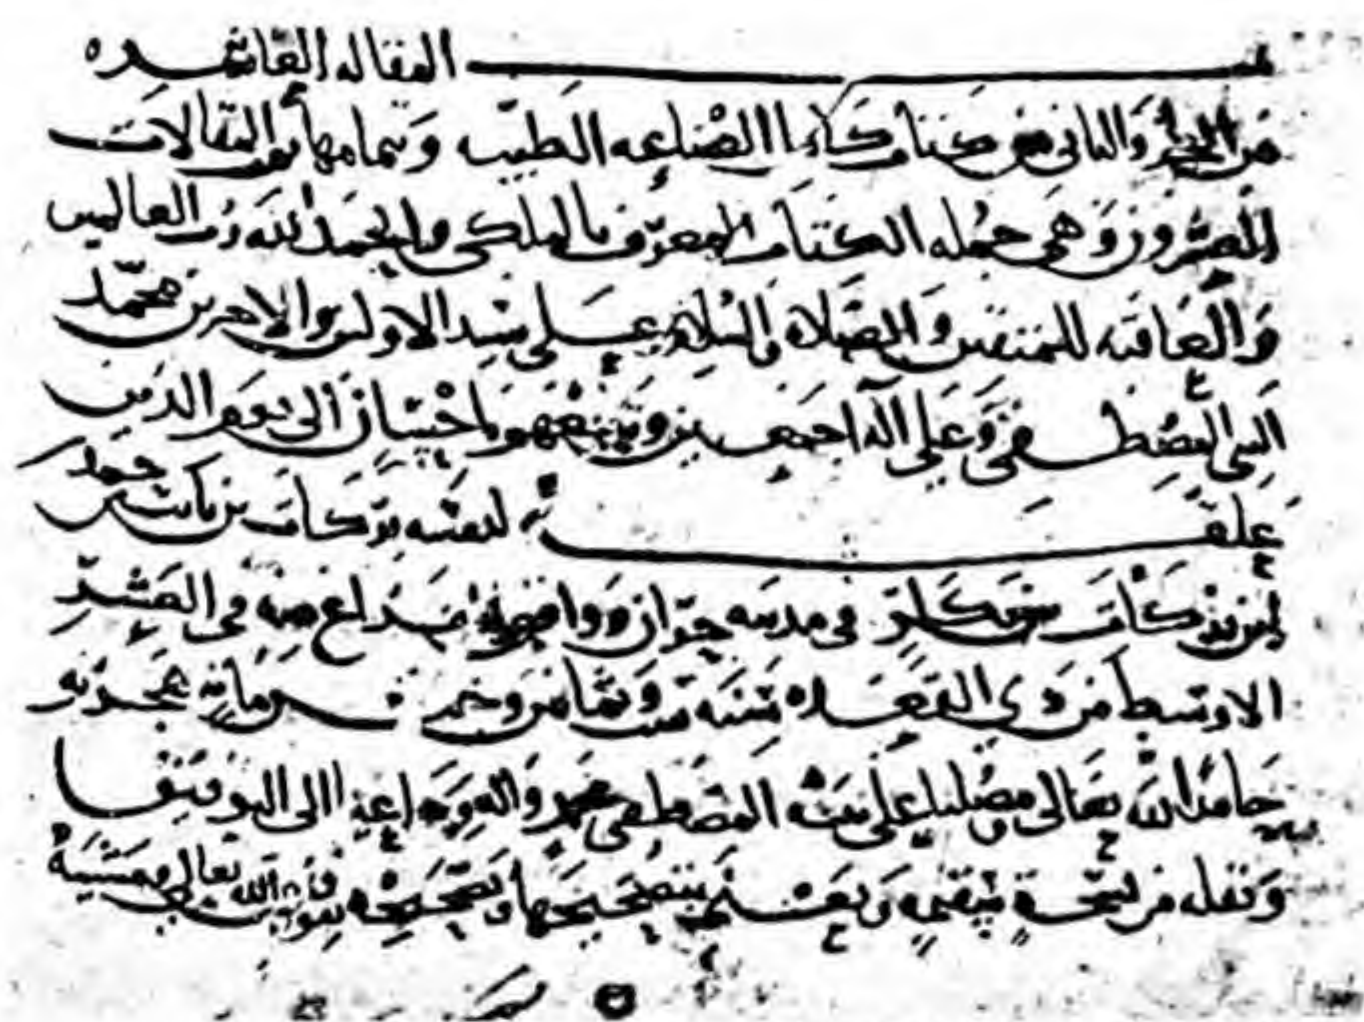 تمت المقاله العاشره
من الجزء الثانى من كتاب كامل الصناعه الطبيه وبتمامها تمت المقالات
العشرون وهى جمله الكتاب المعروف بالملكى والحمد لله رب العالمين
والعاقبه للمتقين والصلاة والسلام على سيد الاولين والاخرين محمد
النبى المصطفى وعلى آله اجمعين وتبعهم باحسان الى يوم الدين
علقه لنفسه بركات بن ثابت
بن بركات فى مدينه حران ووافق فراغ منه فى العشر
الاوسط من ذى القعده سنة ست وثمانين وخمس مايه هجريه
حامدا لله تعالى ومصليا على نبيه المصطفى محمد واله وداعيا الى
ونقله من نسخة سقيمة بتصحيحها وتصحيحه تعالى ومشيته